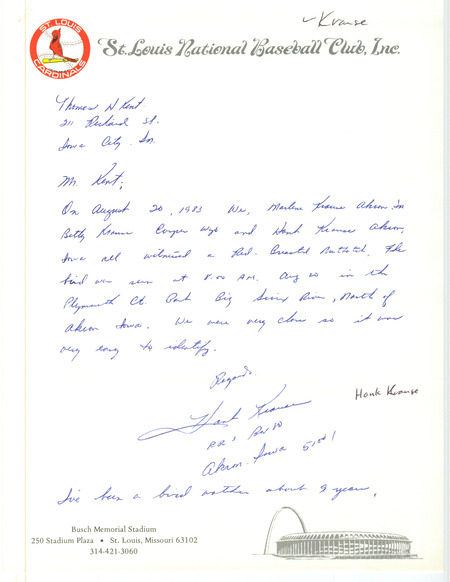 ✓Krause
ST. LOUIS
CARDINALS
St. Louis National Baseball Club, Inc.
Thomas H Kent
211 Richard St.
Iowa City Ia.
Mr. Kent;
On August 20, 1983 We, Marlene Krause Akron, Ia
Betty Krause Casper Wyo and Hank Krause Akron,
Iowa all witnessed a Red. Breasted Nuthatch. The
bird was seen at 8:00 AM. Aug 20 in the
Plymouth Ct. Park Big Sioux River, North of
Akron Iowa. We were very close so it was
very easy to identify.
Regards
Hank Krause
Hank Krause
RR 1 Box
Akron Iowa 51001
I've been a bird watcher about 9 years.
Busch Memorial Stadium
250 Stadium Plaza • St. Louis, Missouri 63102
314-421-3060